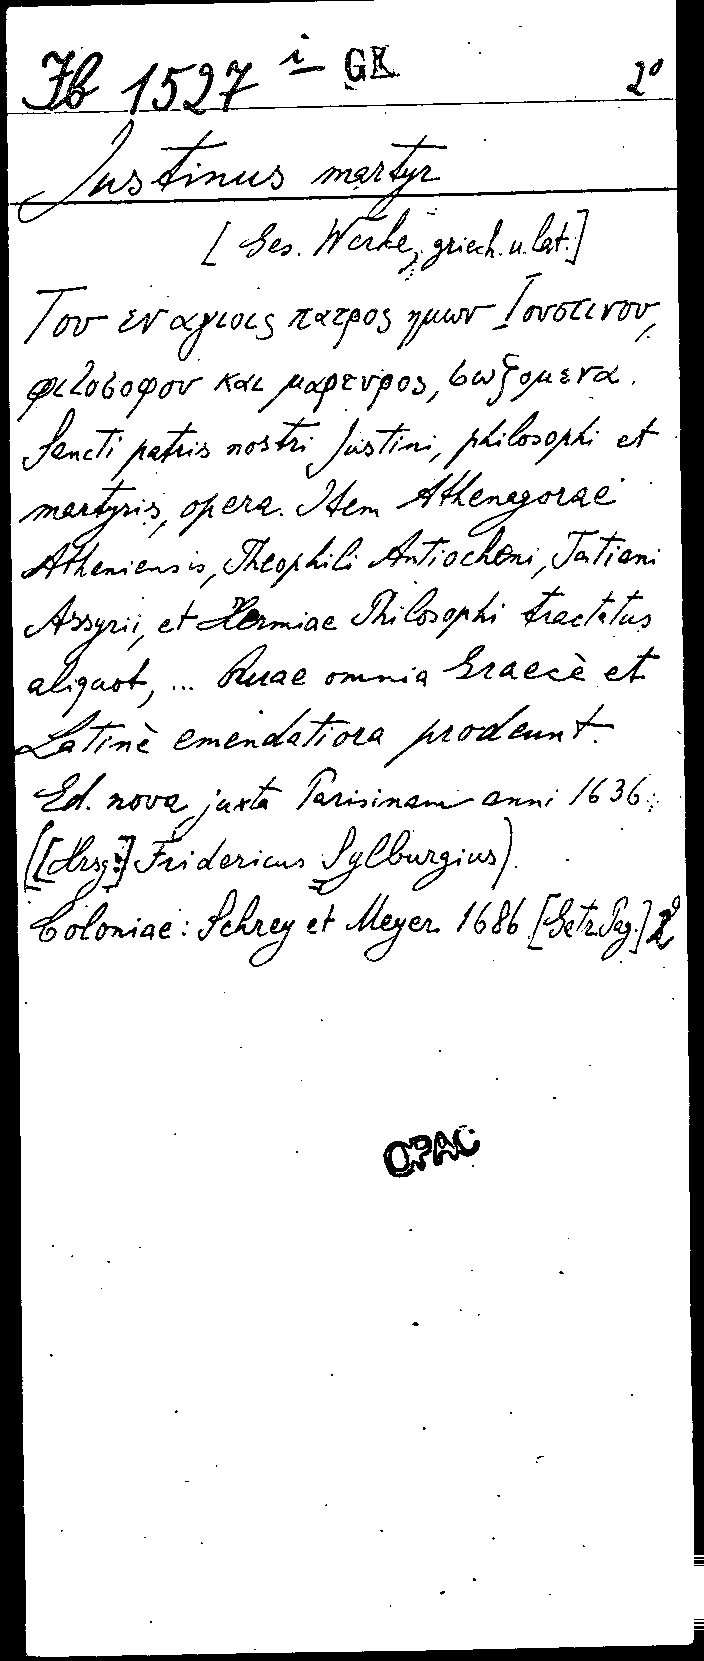 Jb 1527 i GK 2°
Justinus martyr
[Ges. Werke, griech. u. lat.]
Του εν αγιοις πατρος ημων Ιουστινου,
φιλοσοφου και μαρτυρος, σωζομενα.
Sancti patris nostri Justini, philosophi et
martyris, opera. Item Athenagorae
Atheniensis, Theophili Antiocheni, Tatiani
Assyrii, et Hermiae Philosophi tractatus
aliquot, ... Quae omnia Graecè et
Latinè emendatiora prodeunt.
Ed. nova juxta Parisinam anni 1636.
([Hrsg:] Fridericus Sylburgius).
Coloniae: Schrey et Meyer 1686 [Getr. Pag.] 2°
OPAC